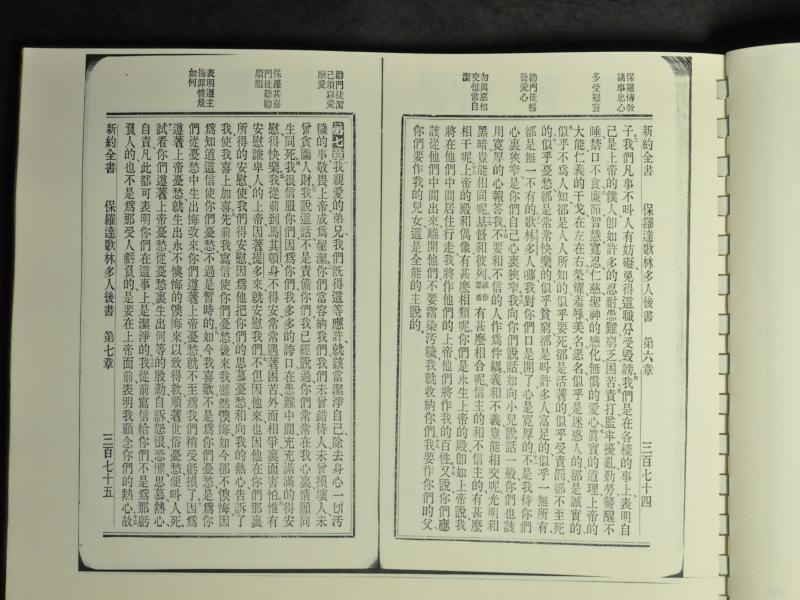 新約全書 保羅達歌林多人後書 第六章 三百七十四
保羅傳敎
諸事忠心
多受艱窘
勸門徒暢
發愛心
勿與惡相
交但當自
潔
子我們凡事不呌人有妨礙免得這職分受毀謗我們是在各樣的事上表明自
己是上帝的僕人卽如許多的忍耐患難窮乏困苦責打監牢擾亂勤勞警醒不
睡禁口不食廉節智慧寬忍仁慈聖神的感化無僞的愛心眞實的道理上帝的
大能仁義的干戈在左在右榮耀羞辱美名惡名似乎是迷惑人的卻是誠實的
似乎不爲人知卻是人人所知的似乎要死卻是活著的似乎受責罰卻不至死
的似乎憂愁卻是常常快樂的似乎貧窮卻是呌許多人富足的似乎一無所有
卻是無一不有的歌林多人哪我對你們口是開了心是寬厚的不是我待你們
心裏狹窄是你們自己心裏狹窄我向你們說話如向小兒說話一般你們也該
用寬厚的心報答我不要和不信的人作爲伴緍義和不義豈能相交呢光明和
黑暗豈能相同呢基督和彼列有甚麼相合呢信主的和不信主的有甚麼
相干呢上帝的殿和偶像有甚麼相類呢你們是永生上帝的殿卽如上帝說我
將在他們中間居住行走我將作他們的上帝他們將作我的百性又說你們應
該從他們中間出來離開他們不要霑染汚穢我就收納你們我要作你們的父
你們要作我的兒女這是全能的主說的
勸門徒潔
己須以愛
酬愛
保羅甚喜
門徒勸勉
順服
表明遵主
悔罪情景
如何
第七章我親愛的弟兄我們旣得這等應許就該當潔淨自己除去身心一切汚
穢的事敬畏上帝成爲聖潔你們當容納我們我們未曾錯待人未曾損壞人未
曾貪圖人財我說這話不是責備你們我已經說過你們常常在我心裏情願同
生同死我很信服你們因爲你們我多多的誇口在患難中間充充滿滿的得安
慰得快樂我從前到馬其頓身不得安常常遇著困苦外面相爭裏面害怕惟有
安慰謙卑人的上帝因著提多來就安慰我們不但因他來也因他在你們那裏
所得的安慰使我們得安慰因爲他把你們的思慕憂愁和向我的熱心告訴了
我使我喜上加喜先前我寫信使你們憂愁後來我雖然懊悔如今卻不懊悔因
爲知道這信使你們憂愁不過是暫時的如今我喜歡不是爲你們憂愁是爲你
們從憂愁中生出悔改來你們遵著上帝憂愁就不至爲我們稍受虧損了因爲
遵著上帝憂愁就生出永不懊悔的懊悔來以致得救順著世俗憂愁便呌人死
試看你們遵著上帝憂愁從憂愁裏生出何等的殷勤自訴怨恨恐懼思慕熱心
自責凡此都可表明你們在這事上是潔淨的我從前寫信給你們不是爲那虧
負人的也不是爲那受人虧負的是要在上帝面前表明我顧念你們的熱心故
新約全書 保羅達歌林多人後書 第七章 三百七十五